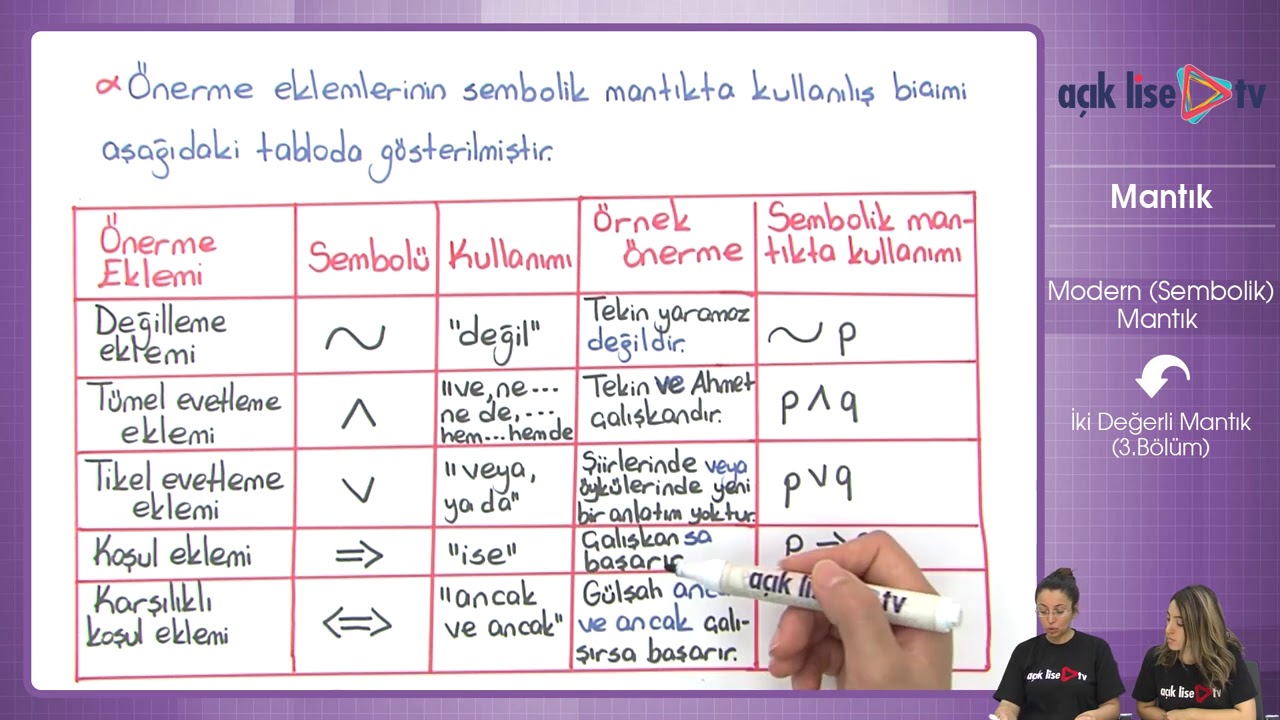 α Önerme eklemlerinin sembolik mantıkta kullanılış biçimi
aşağıdaki tabloda gösterilmiştir.
Önerme
Eklemi
Sembolü
Kullanımı
Örnek
Önerme
Sembolik man-
tıkta kullanımı
Değilleme
eklemi
~
"değil"
Tekin yaramaz
değildir.
~ p
Tümel evetleme
eklemi
∧
"ve, ne ---
ne de, ---
hem...hemde
Tekin ve Ahmet
çalışkandır.
p ∧ q
Tikel evetleme
eklemi
∨
"veya,
ya da"
Şiirlerinde veya
öykülerinde yeni
bir anlatım yoktur.
p ∨ q
Koşul eklemi
=>
"ise"
Çalışkansa
başarır
p →
Karşılıklı
koşul eklemi
<=>
"ancak
ve ancak"
Gülşah
ve ancak çalı-
şırsa başarır.
açık li tv
açık lise tv
Mantık
Modern (Sembolik)
Mantık
İki Değerli Mantık
(3.Bölüm)
açık lise tv
açık lise tv